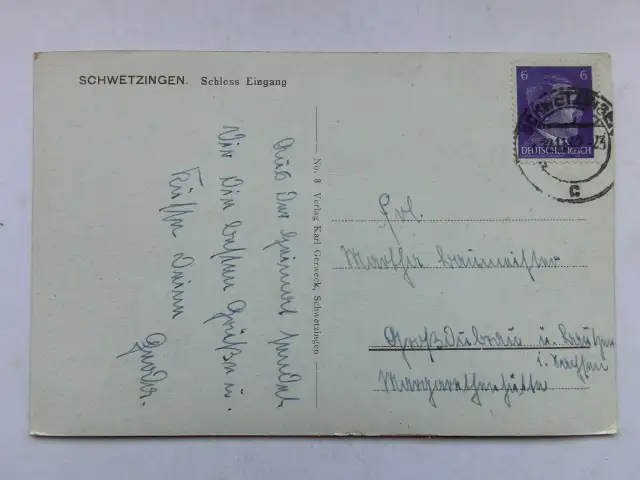 SCHWETZINGEN. Schloss Eingang
Aus der Heimat sendet
Dir die besten Grüße u.
Küsse Deine
No. 8 Verlag Karl Gerweck, Schwetzingen
6 6
DEUTSCHES REICH
SCHWETZINGEN
c
Frl.
Martha Baumeister
Großdubrau u. Bautzen
i. Sachsen
Margarethenhütte